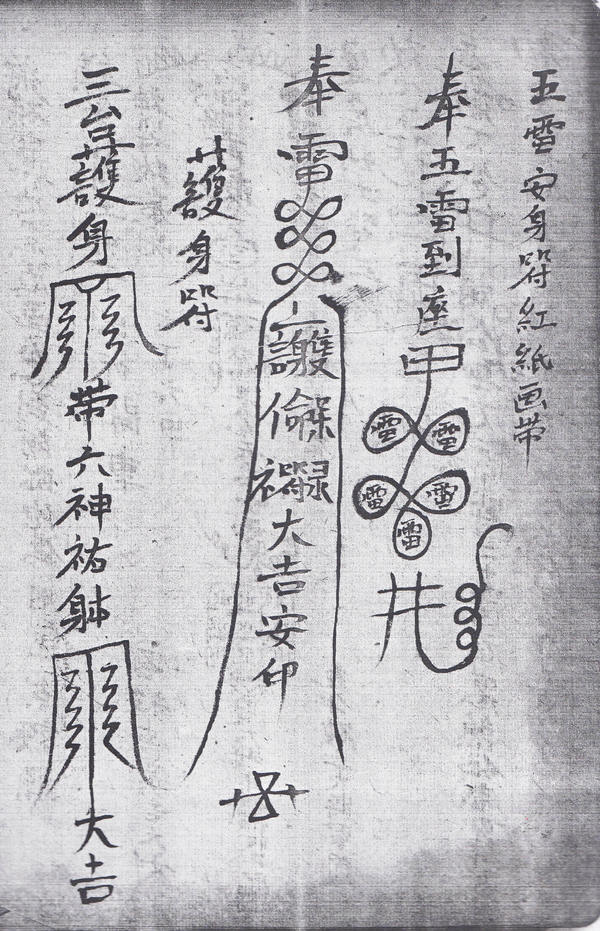 五雷安身符紅紙画带
奉五雷到座甲
雷雷
雷雷
雷
井
奉雷
護
大吉安印
護身符
三台護身
带六神祐身
大吉